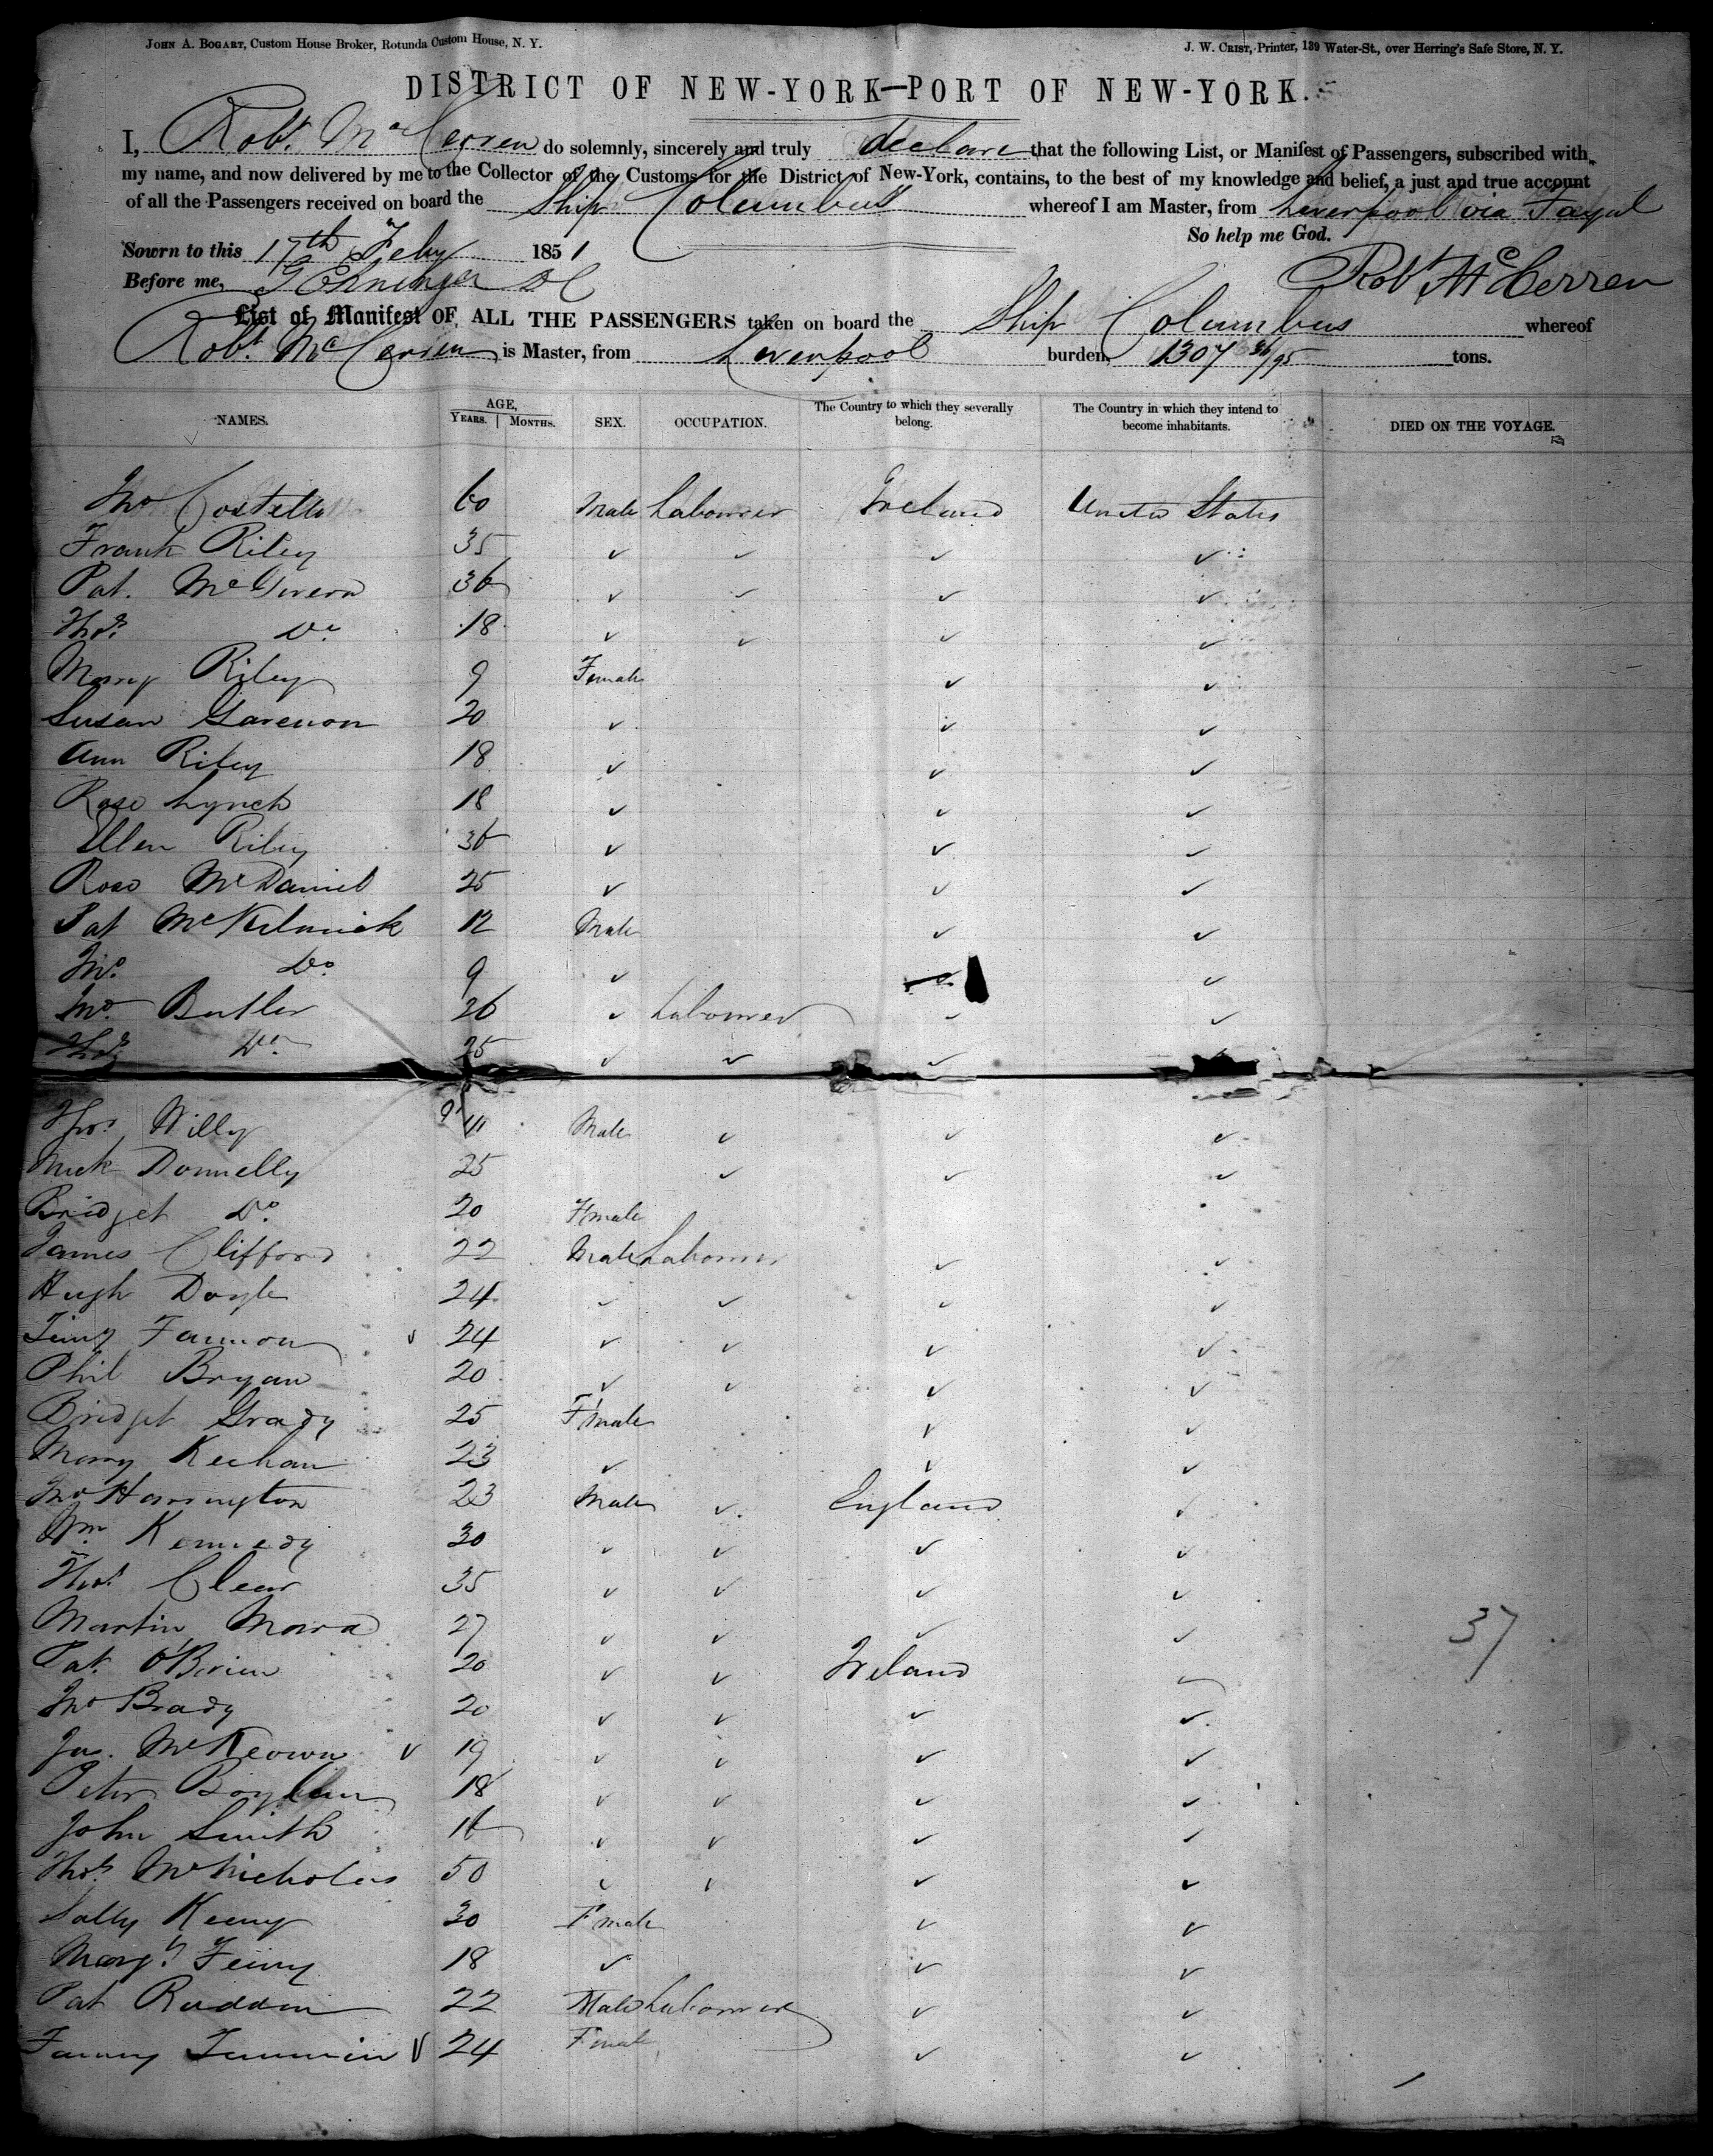 JOHN A. BOGART, Custom House Broker, Rotunda Custom House, N. Y. J. W. CRIST, Printer, 139 Water-St., over Herring's Safe Store, N. Y.
DISTRICT OF NEW-YORK—PORT OF NEW-YORK.
I, Robt. McCerren do solemnly, sincerely and truly declare that the following List, or Manifest of Passengers, subscribed with
my name, and now delivered by me to the Collector of the Customs for the District of New-York, contains, to the best of my knowledge and belief, a just and true account
of all the Passengers received on board the Ship Columbus whereof I am Master, from Liverpool via Fayal
So help me God.
Sworn to this 17th Feby 1851
Before me, Robt McCerren
List of Manifest OF ALL THE PASSENGERS taken on board the Ship Columbus whereof
Robt. McCerren is Master, from Liverpool burden, 1307 36/95 tons.
NAMES. AGE, YEARS. MONTHS. SEX. OCCUPATION. The Country to which they severally belong. The Country in which they intend to become inhabitants. DIED ON THE VOYAGE.
Jno Costello 60 Male Labourer Ireland United States
Frank Riley 35 ✓ ✓ ✓ ✓
Pat. McGivern 36 ✓ ✓ ✓ ✓
Thos. Do. 18 ✓ ✓ ✓ ✓
Mary Riley 9 Female ✓ ✓
Susan 20 ✓ ✓ ✓
Ann Riley 18 ✓ ✓ ✓
Rose Lynch 18 ✓ ✓ ✓
Ellen Riley 36 ✓ ✓ ✓
Rose McDaniel 25 ✓ ✓ ✓
Pat 12 Male ✓ ✓
Jno. Do. 9 ✓ ✓ ✓
Jno. Butler 26 ✓ Labourer ✓ ✓
Thos Do 25 ✓ ✓ ✓
Thos. Willy Male ✓ ✓ ✓
Mick Donnelly 25 ✓ ✓ ✓
Bridget Do. 20 Fmale
James Clifford 22 Male Labourer ✓ ✓
Hugh Doyle 24 ✓ ✓ ✓ ✓
Fannon ✓ 24 ✓ ✓ ✓ ✓
Phil Bryan 20 ✓ ✓ ✓ ✓
Bridget Grady 25 Fmale ✓ ✓
Mary Keehan 23 ✓ ✓ ✓
Jno Harrington 23 Male ✓ England ✓
Wm. Kennedy 30 ✓ ✓ ✓ ✓
Thos. Clear 35 ✓ ✓ ✓ ✓
Martin Mara 27 ✓ ✓ ✓ ✓ 37
Pat. O'Brien 20 ✓ ✓ Ireland ✓
Jno Brady 20 ✓ ✓ ✓ ✓
Jas. McKeown ✓ 19 ✓ ✓ ✓ ✓
Peter Boylan 18 ✓ ✓ ✓ ✓
John Smith 16 ✓ ✓ ✓ ✓
Thos. McNicholas 50 ✓ ✓ ✓ ✓
Sally Keeny 30 Fmale ✓ ✓
Margt. Feiny 18 ✓ ✓ ✓
Pat Ruddin 22 Male Labourer ✓ ✓
Fanny ✓ 24 Fmale ✓ ✓